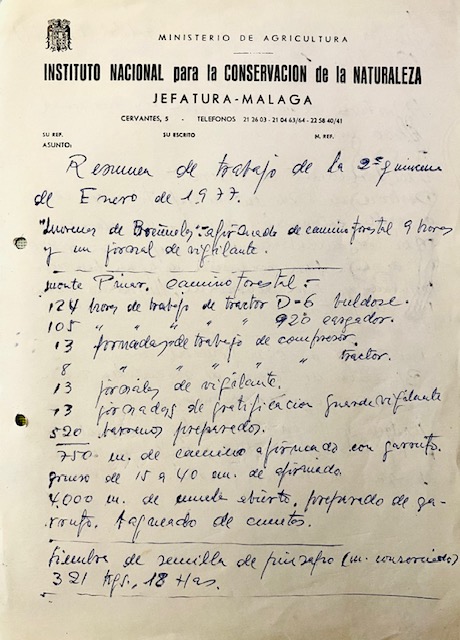 MINISTERIO DE AGRICULTURA
INSTITUTO NACIONAL para la CONSERVACION de la NATURALEZA
JEFATURA-MALAGA
CERVANTES, 5 - TELEFONOS 21 26 03 - 21 04 63/64 - 22 58 40/41
SU REF. SU ESCRITO N. REF.
ASUNTO:
Resumen de trabajo de la 2ª quincena
de Enero de 1.977.
de afirmado de camino forestal 9 horas
y un jornal de vigilante.
monte Pinar. camino forestal.-
124 horas de trabajo de tractor D=6 buldose.
105 " " " " " 920 cargador.
13 jornadas de trabajo de compresor.
8 " " " " tractor.
13 jornales de vigilante.
13 jornadas de gratificacion guarda vigilante
520 barrenos preparados.
750 m. de camino afirmado con garroto.
grueso de 15 a 40 cm. de afirmado.
4.000 m. de cuneta abierto. preparado de ga-
rroto. taqueado de cunetos.
Siembra de semilla de pinsapo
321 Kgs., 18 Has.